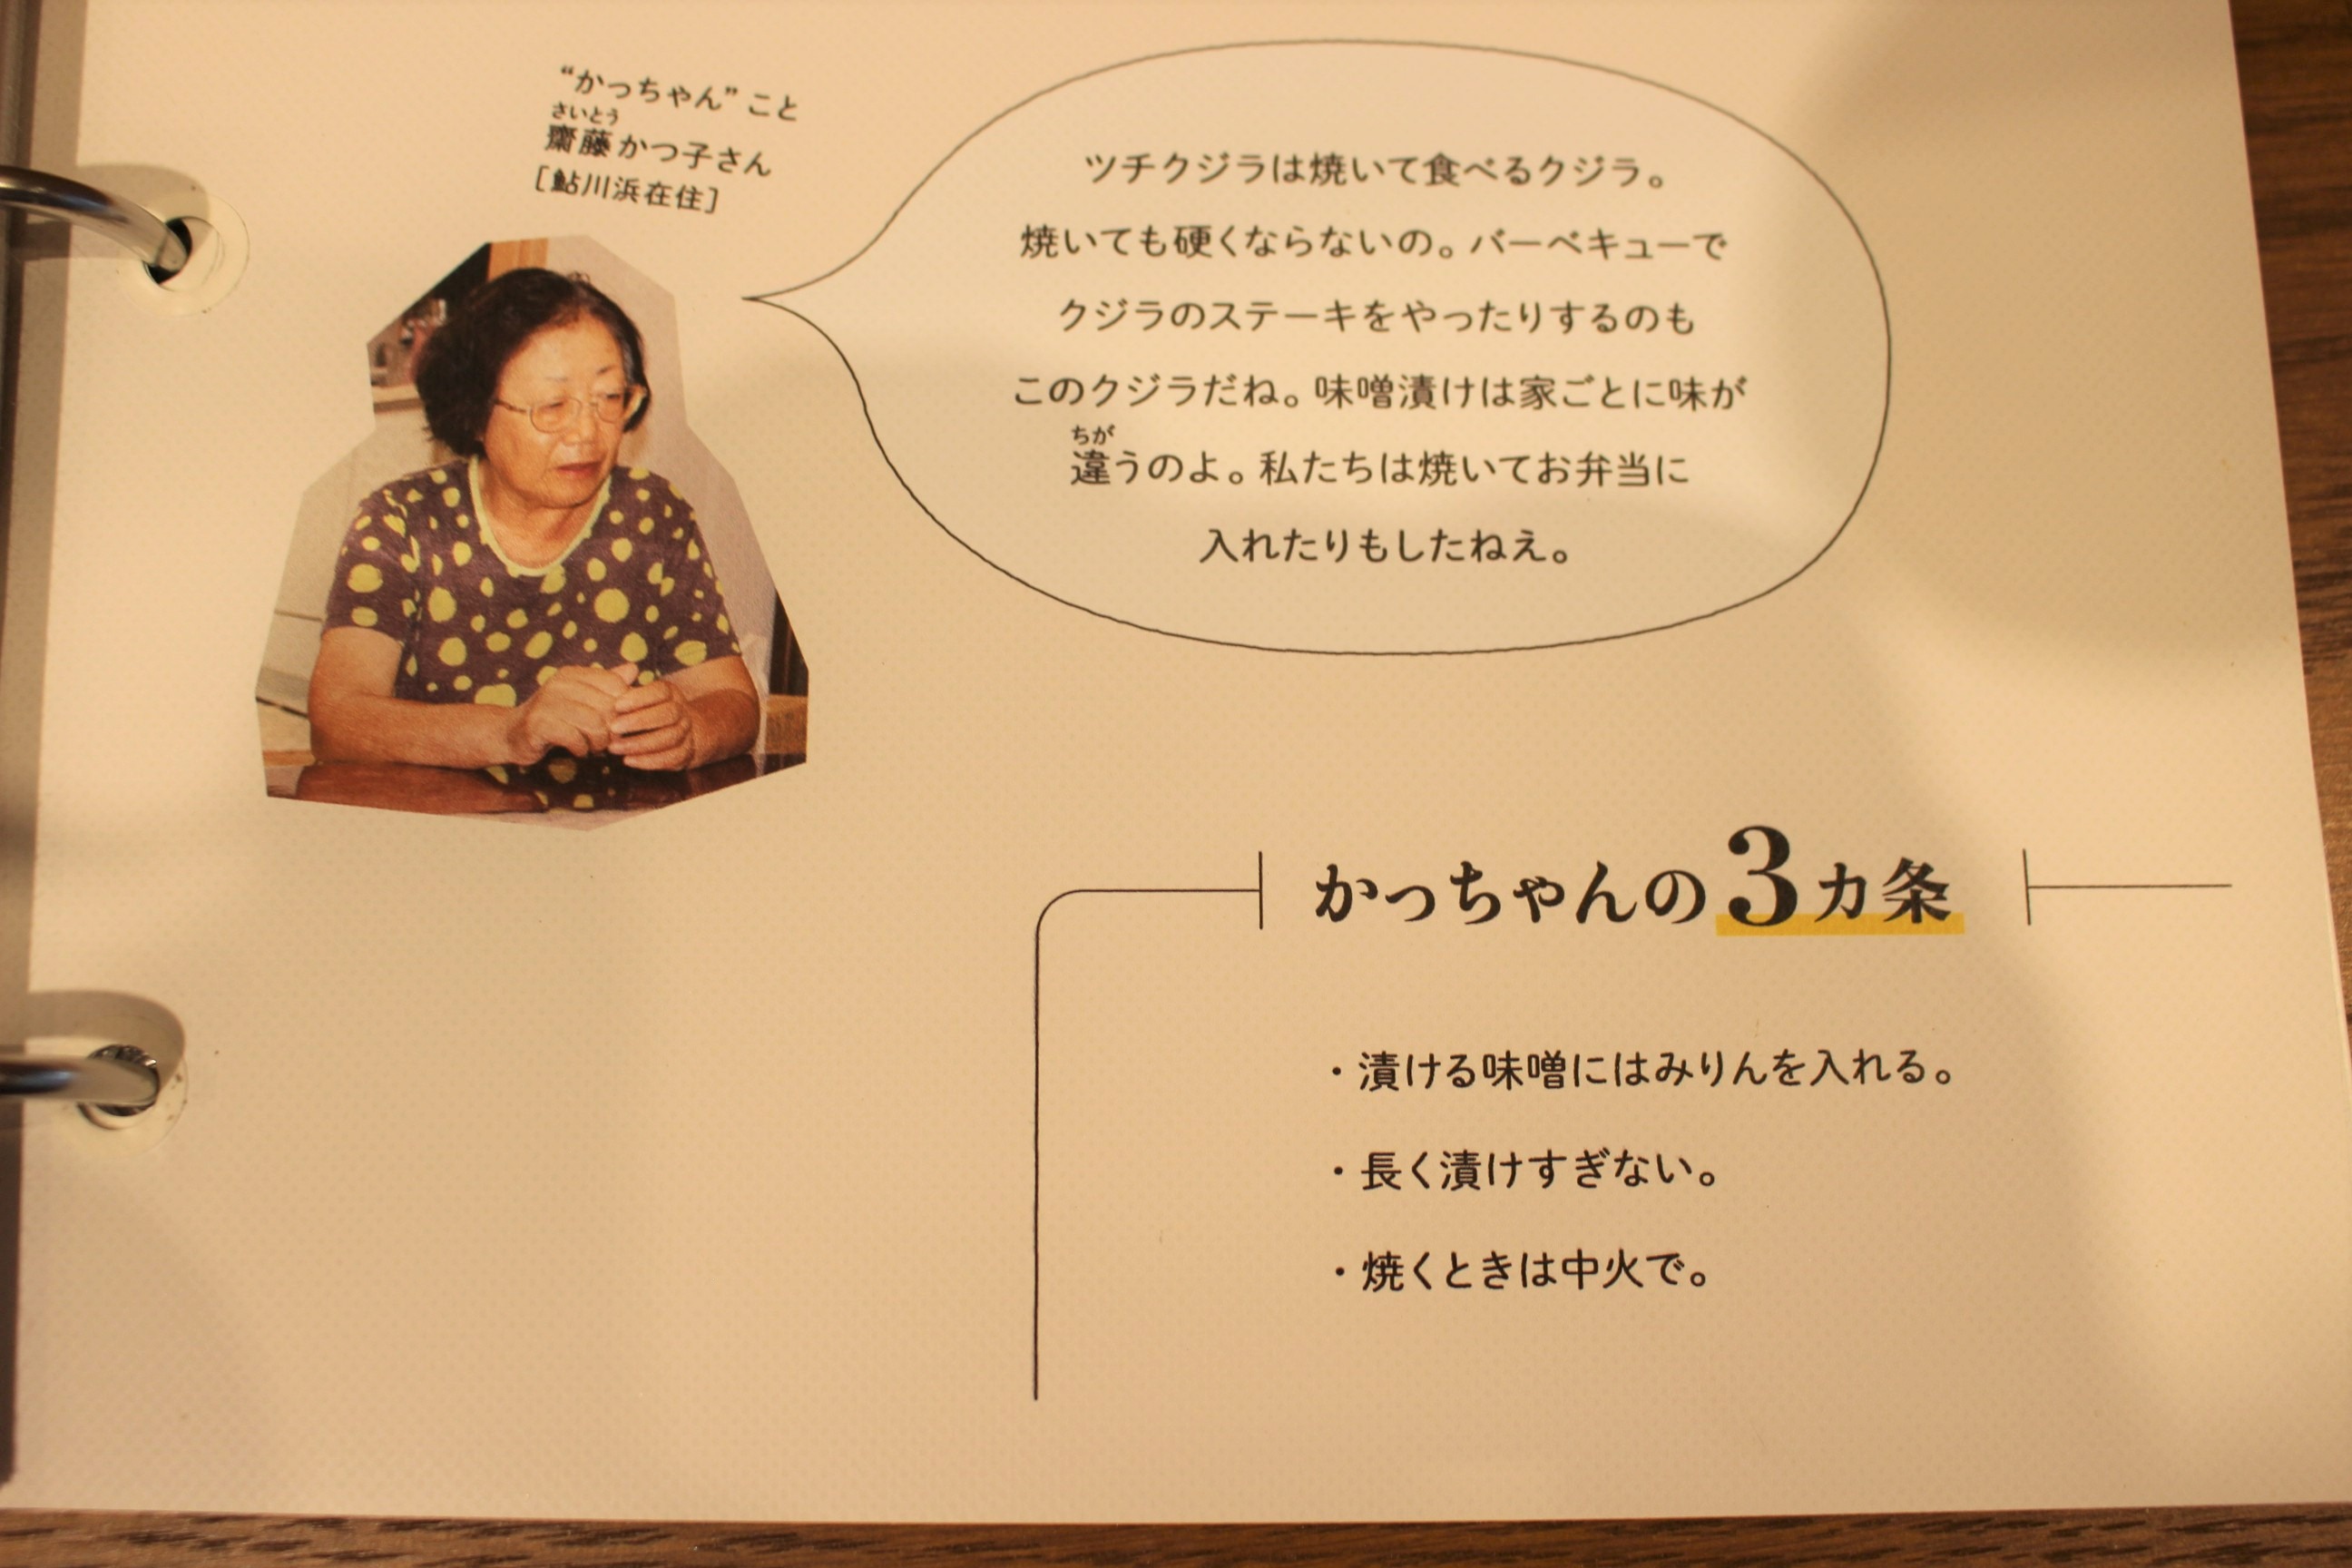 “かっちゃん”こと
さいとう
齋藤かつ子さん
［鮎川浜在住］
ツチクジラは焼いて食べるクジラ。
焼いても硬くならないの。バーベキューで
クジラのステーキをやったりするのも
このクジラだね。味噌漬けは家ごとに味が
ちが
違うのよ。私たちは焼いてお弁当に
入れたりもしたねえ。
かっちゃんの3カ条
・漬ける味噌にはみりんを入れる。
・長く漬けすぎない。
・焼くときは中火で。